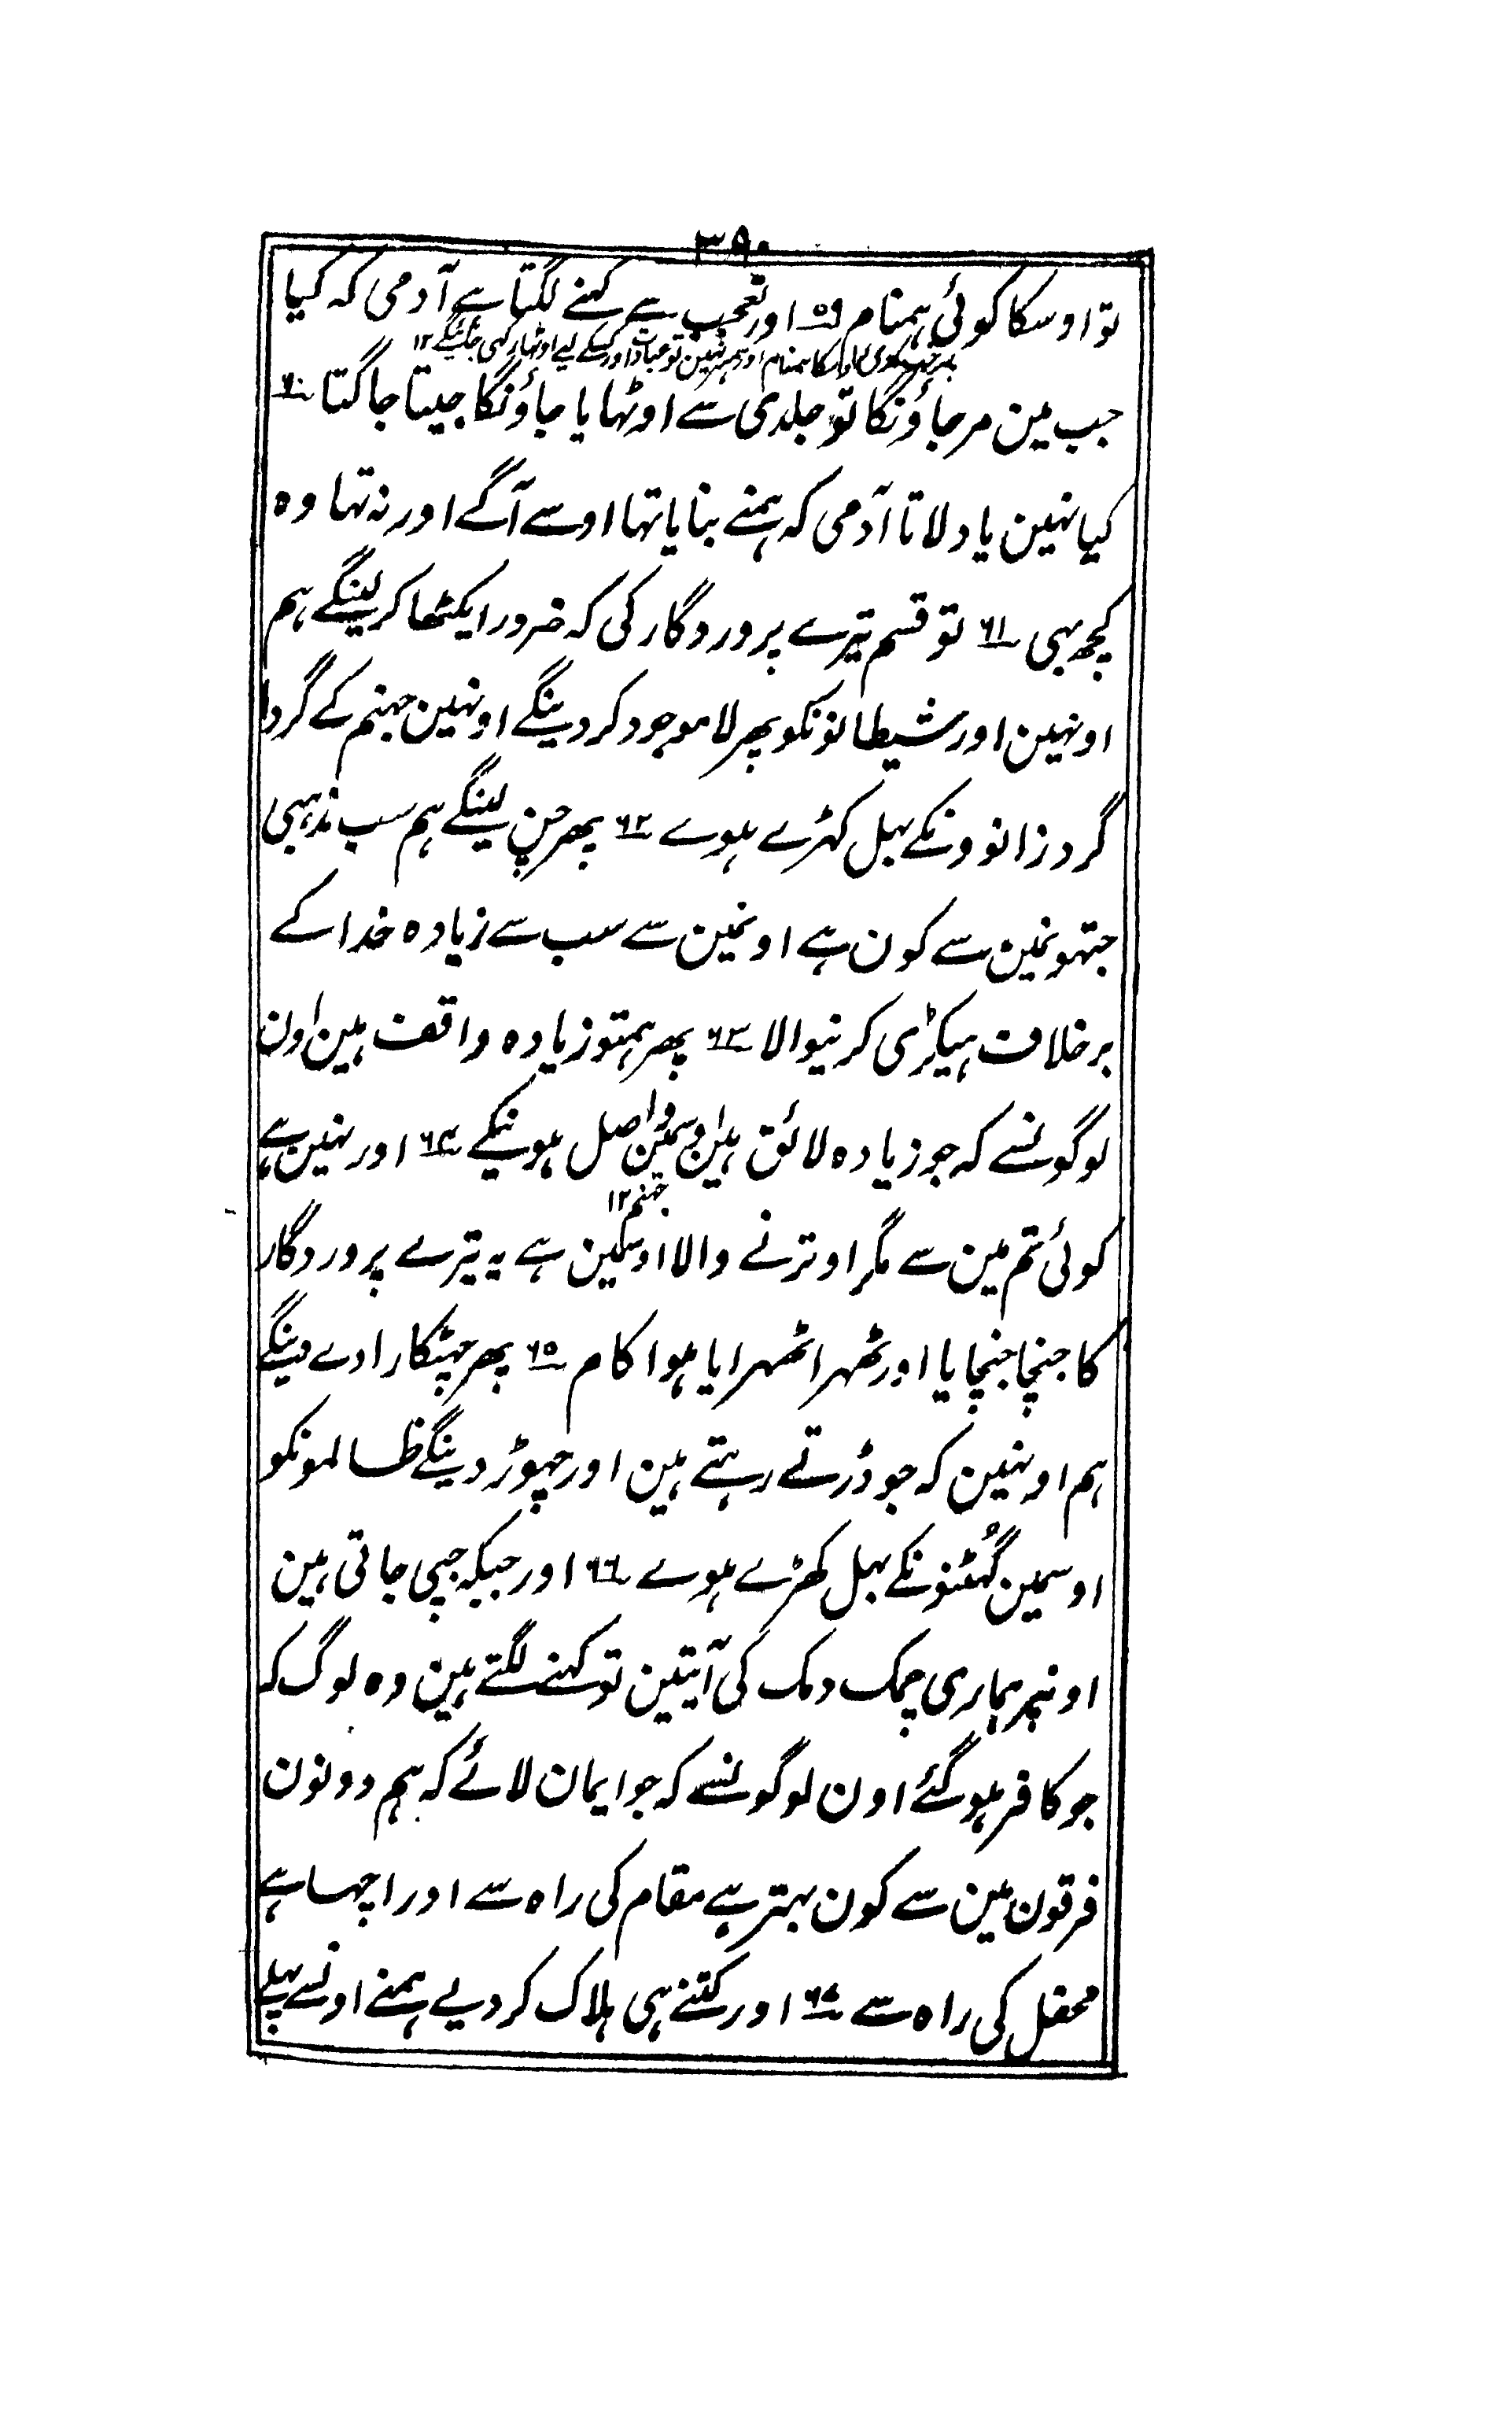 ۳۹۰
تو اوسکا کوئی ہمنام ۵۹ اور تعجب سے کہنے لگتا ہے آدمی کہ کیا
ہمنام اور ہمسر نہین تو عبادت اور کسکے لیے اوٹہا رکہی جائیگی ۱۲
جب مین مر جاؤنگا تو جلدی سے اوٹہایا جاؤنگا جیتا جاگتا ۶۰
کیا نہین یاد لاتا آدمی کہ ہمنے بنایا تہا اوسے آگے اور نہ تہا وہ
کچھ بہی ۶۱ تو قسم تیرے پروردگار کی کہ ضرور ایکٹھا کر لینگے ہم
اونہین اور شیطانونکو پھر لا موجود کر دینگے اونہین جہنم کے گردا
گرد زانوونکے بہل کہڑے ہوے ۶۲ پھر چن لینگے ہم سب مذہبی
جتہونمین سے کون ہے اونمین سے سب سے زیادہ خدا کے
برخلاف ہیکڑی کرنیوالا ۶۳ پھر ہمتو زیادہ واقف ہین اون
لوگونسے کہ جو زیادہ لائق ہین اوسمین واصل ہونیکے ۶۴ اور نہین ہے
جہنم ۱۲
کوئی تم مین سے مگر اوترنے والا اوسکین ہے یہ تیرے پروردگار
کا جنچا جنچایا اور ٹھہرا ٹھہرایا ہوا کام ۶۵ پھر چہٹکارا دے دینگے
ہم اونہین کہ جو ڈرتے رہتے ہین اور چہوڑ دینگے ظالمونکو
اوسمین گُہٹنونکے بہل کھڑے ہوے ۶۶ اور جبکہ جپی جاتی ہین
اونپر ہماری چمک دمک کی آیتین تو کہنے لگتے ہین وہ لوگ کہ
جو کافر ہو گئے اون لوگونسے کہ جو ایمان لائے کہ ہم دونون
فرقون مین سے کون بہتر ہے مقام کی راہ سے اور اچہا ہے
محفل کی راہ سے ۶۷ اور کتنے ہی ہلاک کر دیے ہمنے اونسے پہلے